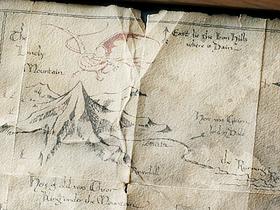 The
Lonely
Mountain.
East lie the Iron Hills
where is Dain.
Here was Girion
Lord in Dale
the Running R
Ravenhill
Here of old was Thror
King under the Mountain